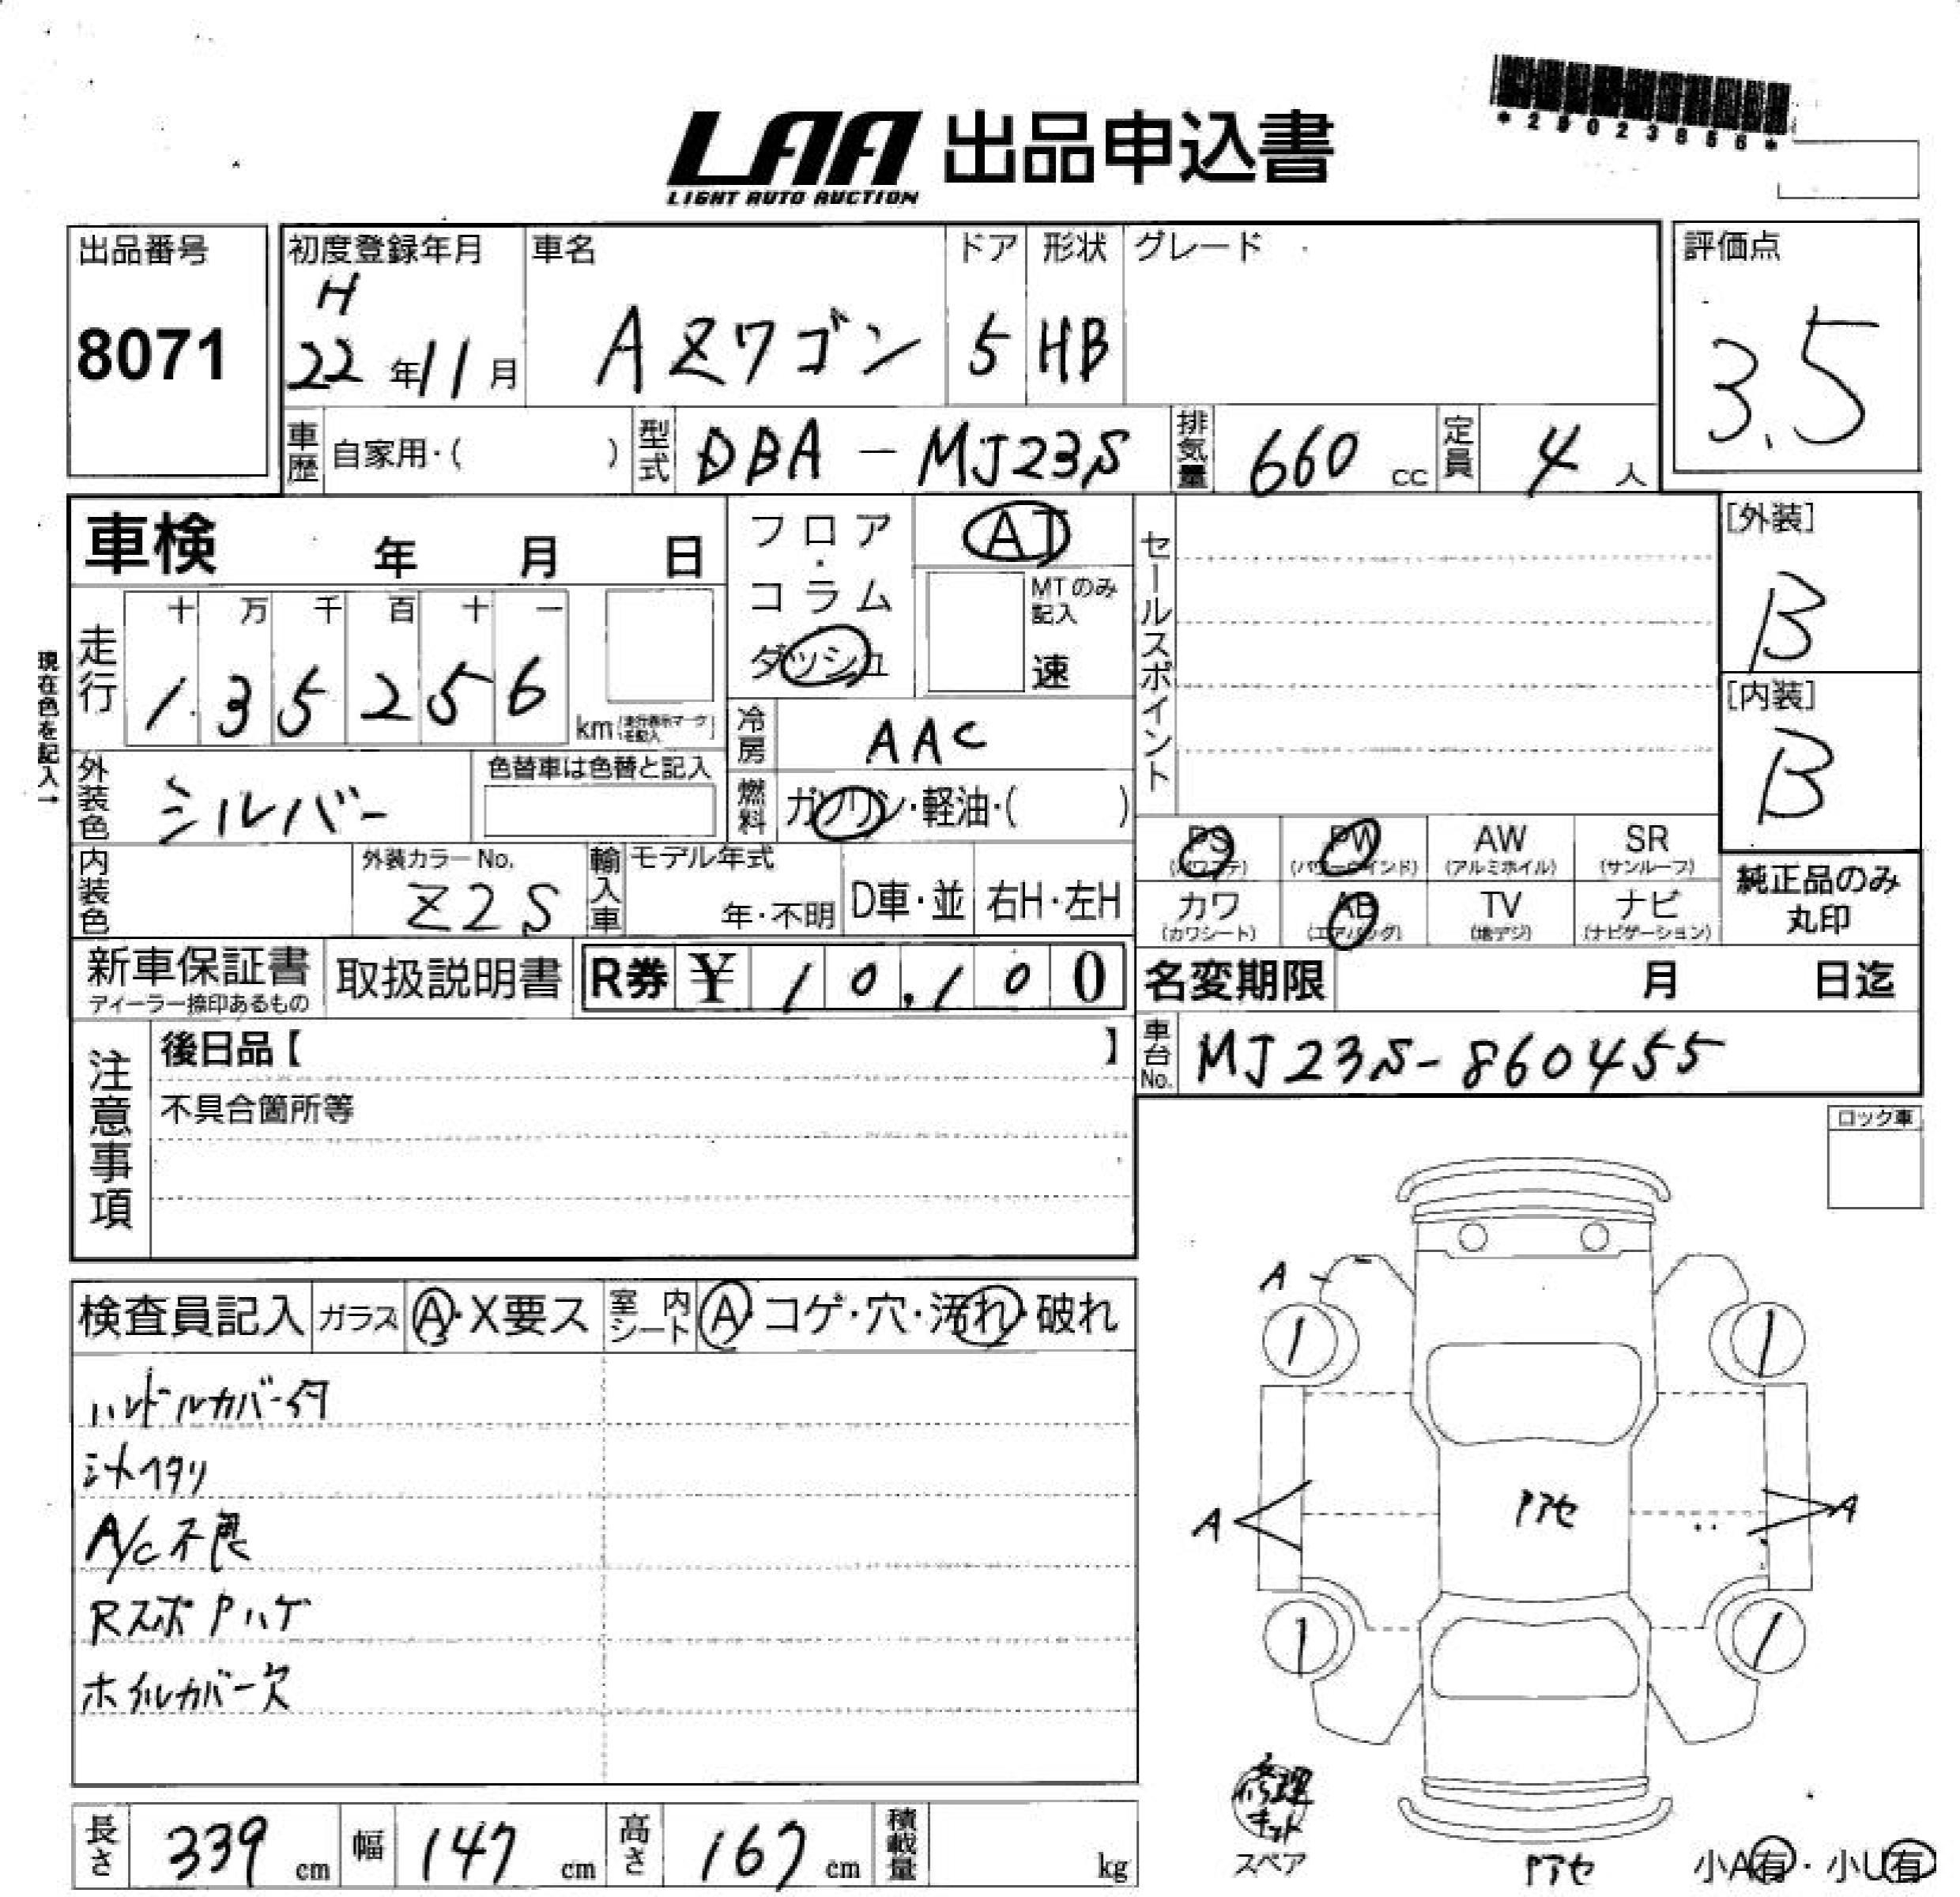 *29023856*
LAA 出品申込書
LIGHT AUTO AUCTION
出品番号
8071
初度登録年月
H
22年11月
車名
AZワゴン
ドア
5
形状
HB
グレード
評価点
3.5
車歴 自家用・( )
型式 DBA-MJ23S
排気量 660 cc
定員 4 人
車検 年 月 日
フロア・コラム
ダッシュ
AT
MTのみ記入
速
セールスポイント
[外装]
B
[内装]
B
現在色を記入→
走行
十 万 千 百 十 一
1 3 5 2 5 6
km
冷房 AAC
外装色 シルバー
色替車は色替と記入
燃料 ガソリン・軽油・( )
PS (パワステ)
PW (パワーウインド)
AW (アルミホイル)
SR (サンルーフ)
カワ (カワシート)
AB (エアバッグ)
TV (地デジ)
ナビ (ナビゲーション)
純正品のみ
丸印
内装色
外装カラーNo.
Z2S
輸入車
モデル年式
年・不明
D車・並
右H・左H
新車保証書
ディーラー捺印あるもの
取扱説明書
R券 ¥ 10,100
名変期限 月 日迄
車台No. MJ23S-860455
注意事項
後日品【 】
不具合箇所等
ロック車
検査員記入
ガラス A・X要ス
室内シート A・コゲ・穴・汚れ・破れ
ハンドルカバー付
シートヘタリ
A/C不良
RスポPハゲ
ホイルカバー欠
A
1
1
A
Pアセ
A
1
1
修理
キット
スペア
Pアセ
小A有・小U有
長さ 339 cm
幅 147 cm
高さ 167 cm
積載量 kg